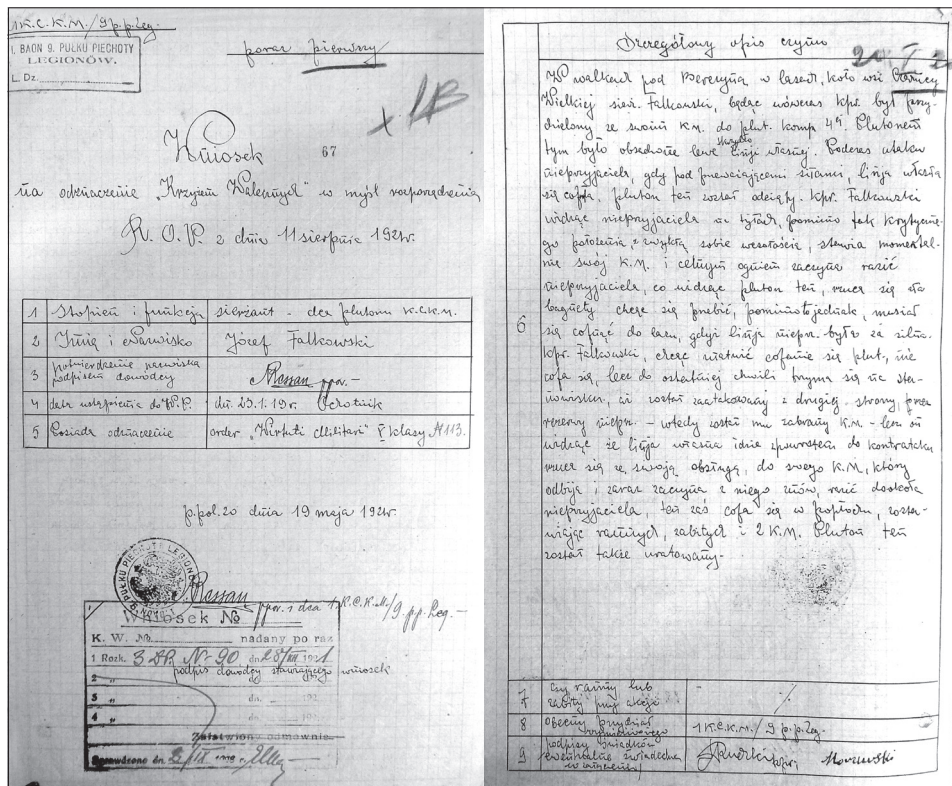 1 K.C.K.M./9 p.p. Leg.
I. BAON 9. PUŁKU PIECHOTY
LEGIONÓW.
L. Dz.
poraz pierwszy
Wniosek
67
na odznaczenie "Krzyżem Walecznych" w myśl rozporządzenia
R. O. P. z dnia 11 sierpnia 192 r.
1 Stopień i funkcja sierżant - dca plutonu K.C.K.M.
2 Imię i Nazwisko Józef Falkowski
3 potwierdzenie nazwiska podpisem dowódcy Ressan ppor. -
4 data wstąpienia do W.P. dn. 23.1.19 r. Ochotnik
5 Posiada odznaczenie order "Virtuti Militari" V klasy N 113.
p. pol. 20 dnia 19 maja 192 r.
9. PUŁKU PIECHOTY LEGIONÓW
Ressan
ppor. i dca 1 K.C.K.M./9 pp. Leg. -
Wniosek №
K. W. № nadany po raz
1 Rozk. 3 DP. N-90 dn. 28/VII 1921
podpis dowódcy stawiającego wniosek
2 "
3 " dn. 192
4 "
Załatwiony odmownie
Sprawdzono dn.
Szczegółowy opis czynu
W walkach pod Berezyną w lasach, koło wsi
Wielkiej sierż. Falkowski, będąc wówczas kpr. był przy-
dzielony ze swoim K.M. do plut. komp 4ej. Plutonem
tym było obsadzone lewe skrzydło linji własnej. Podczas ataku
nieprzyjaciela, gdy pod przeważającemi siłami, linja własna
się cofała, pluton ten został odcięty. Kpr. Falkowski
widząc nieprzyjaciela na tyłach, pomimo tak krytyczne-
go położenia, z zwykłą sobie wesołością, stawia momental-
nie swój K.M. i celnym ogniem zaczyna razić
nieprzyjaciela, co widząc pluton ten, rzuca się na
bagnety chcąc się przebić, pomimo to jednak, musiał
6 się cofnąć do lasu, gdyż linja nieprz. była za silna.
Kpr. Falkowski, chcąc ułatwić cofanie się plut., nie
cofa się, lecz do ostatniej chwili trzyma się na sta-
nowisku, aż został zaatakowany z drugiej strony, przez
rezerwy nieprz. - wtedy został mu zabrany K.M. - lecz on
widząc że linja własna idzie zpowrotem do kontrataku
rzuca się ze swoją obsługą, do swego K.M., który
odbija i zaraz zaczyna z niego znów, razić dookoła
nieprzyjaciela, ten zaś cofa się w popłochu, zosta-
wiając rannych, zabitych i 2 K.M. Pluton ten
został także uratowany. -
7 czy ranny lub zabity przy akcji -
8 obecny przydział 1 K.C.K.M./9 p.p. Leg.
9 podpisy świadków ewentualne świadectwa